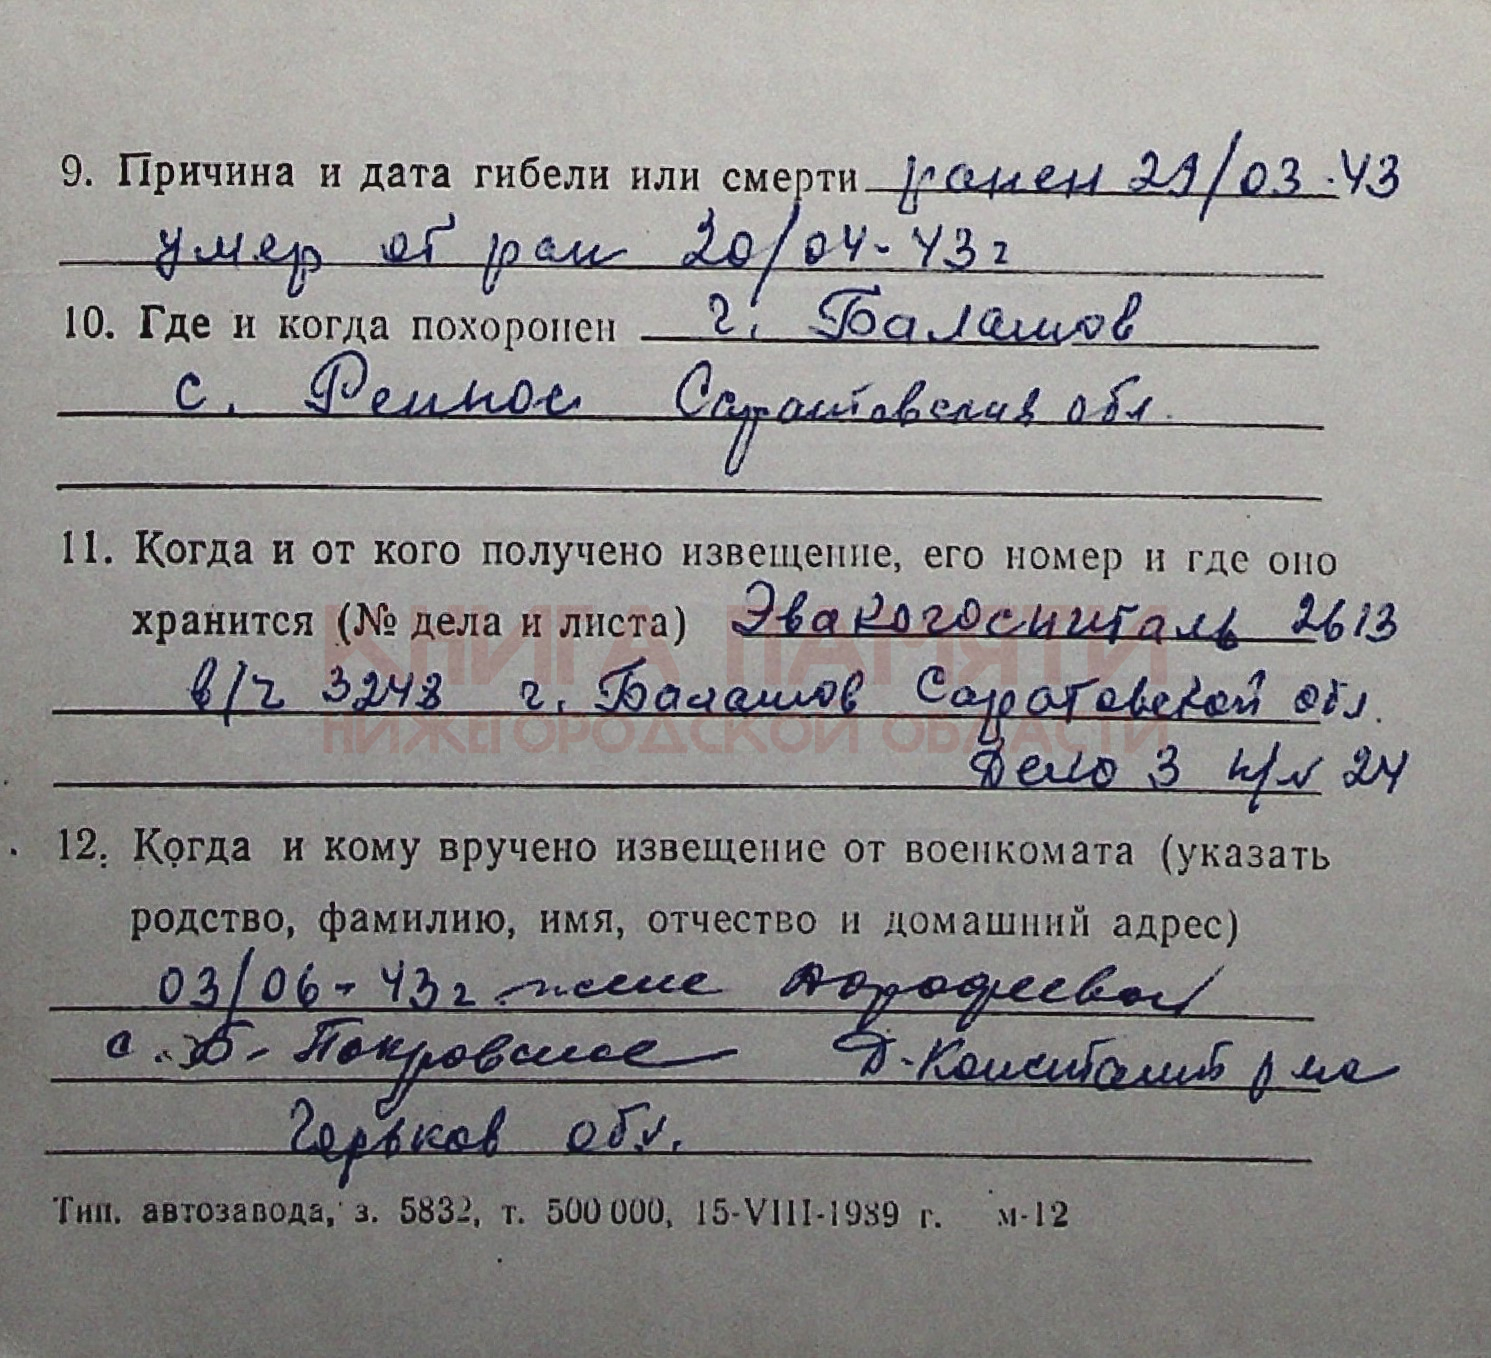 9. Причина и дата гибели или смерти ранен 29/03.43
умер от ран 20/04-43г
10. Где и когда похоронен г. Балашов
с. Репное Саратовская обл.
11. Когда и от кого получено извещение, его номер и где оно
хранится (№ дела и листа) Эвакогоспиталь 2613
КНИГА ПАМЯТИ
в/ч 3248 г. Балашов Саратовской обл.
НИЖЕГОРОДСКОЙ ОБЛАСТИ
Дело 3 н/л 24
12. Когда и кому вручено извещение от военкомата (указать
родство, фамилию, имя, отчество и домашний адрес)
03/06-43г жене
с. Б-Покровское Д-Констант р на
Горьков обл.
Тип. автозавода, з. 5832, т. 500 000, 15-VIII-1989 г. м-12